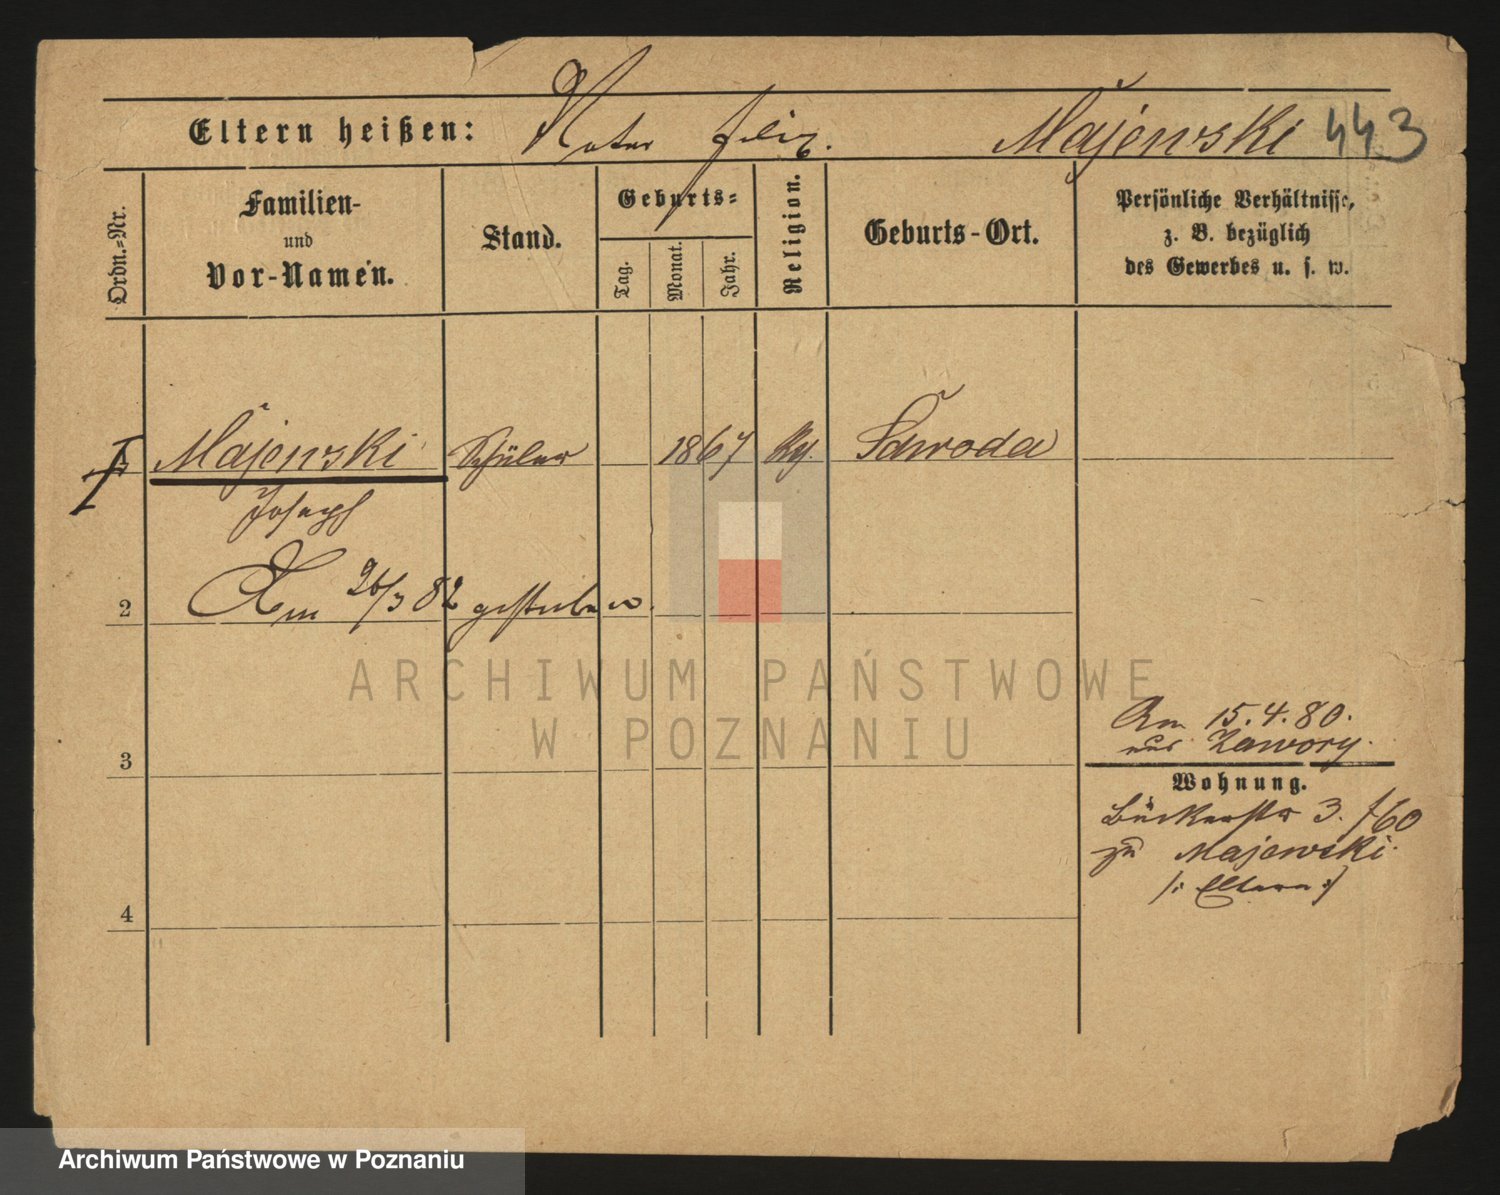 Eltern heißen: Vater Felix. Majewski 443
Ordn.=Nr.
Familien-
und
Vor-Namen.
Stand.
Geburts=
Tag.
Monat.
Jahr.
Religion.
Geburts-Ort.
Persönliche Verhältnisse,
z. B. bezüglich
des Gewerbes u. s. w.
Majewski Schüler 1867 Kth.
Joseph
2 Am 26/3 82 gestorben.
ARCHIWUM PAŃSTWOWE
W POZNANIU
Am 15.4.80.
aus Zawory.
3
Wohnung.
Bäckerstr 3. f60
zu Majewski.
/: Eltern :/
4
Archiwum Państwowe w Poznaniu